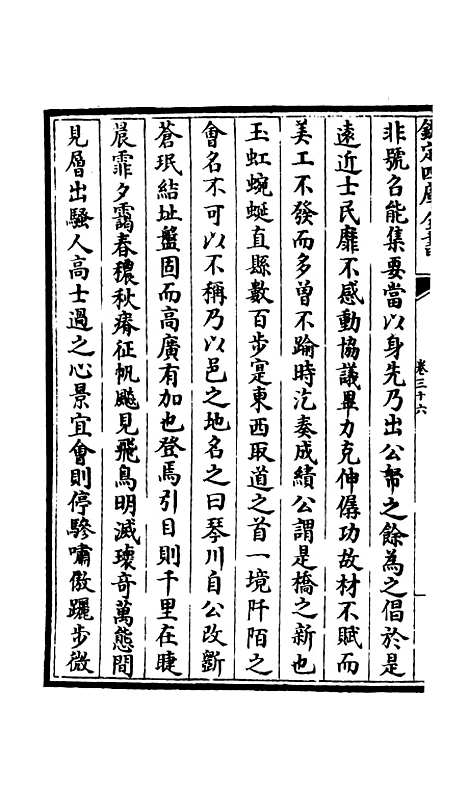 欽定四庫全書
卷三十六
非號召能集要當以身先乃出公帑之餘為之倡於是
遠近士民靡不感動協議畢力克伸僝功故材不賦而
美工不發而多曾不踰時汔奏成績公謂是橋之新也
玉虹蜿蜒直縣數百步寔東西取道之首一境阡陌之
會名不可以不稱乃以邑之地名之曰琴川自公改斵
蒼珉結址盤固而高廣有加也登焉引目則千里在睫
晨霏夕靄春穠秋瘠征帆颷見飛鳥明滅瓌奇萬態間
見層出騷人高士過之心景宜會則停驂嘯傲躧步微